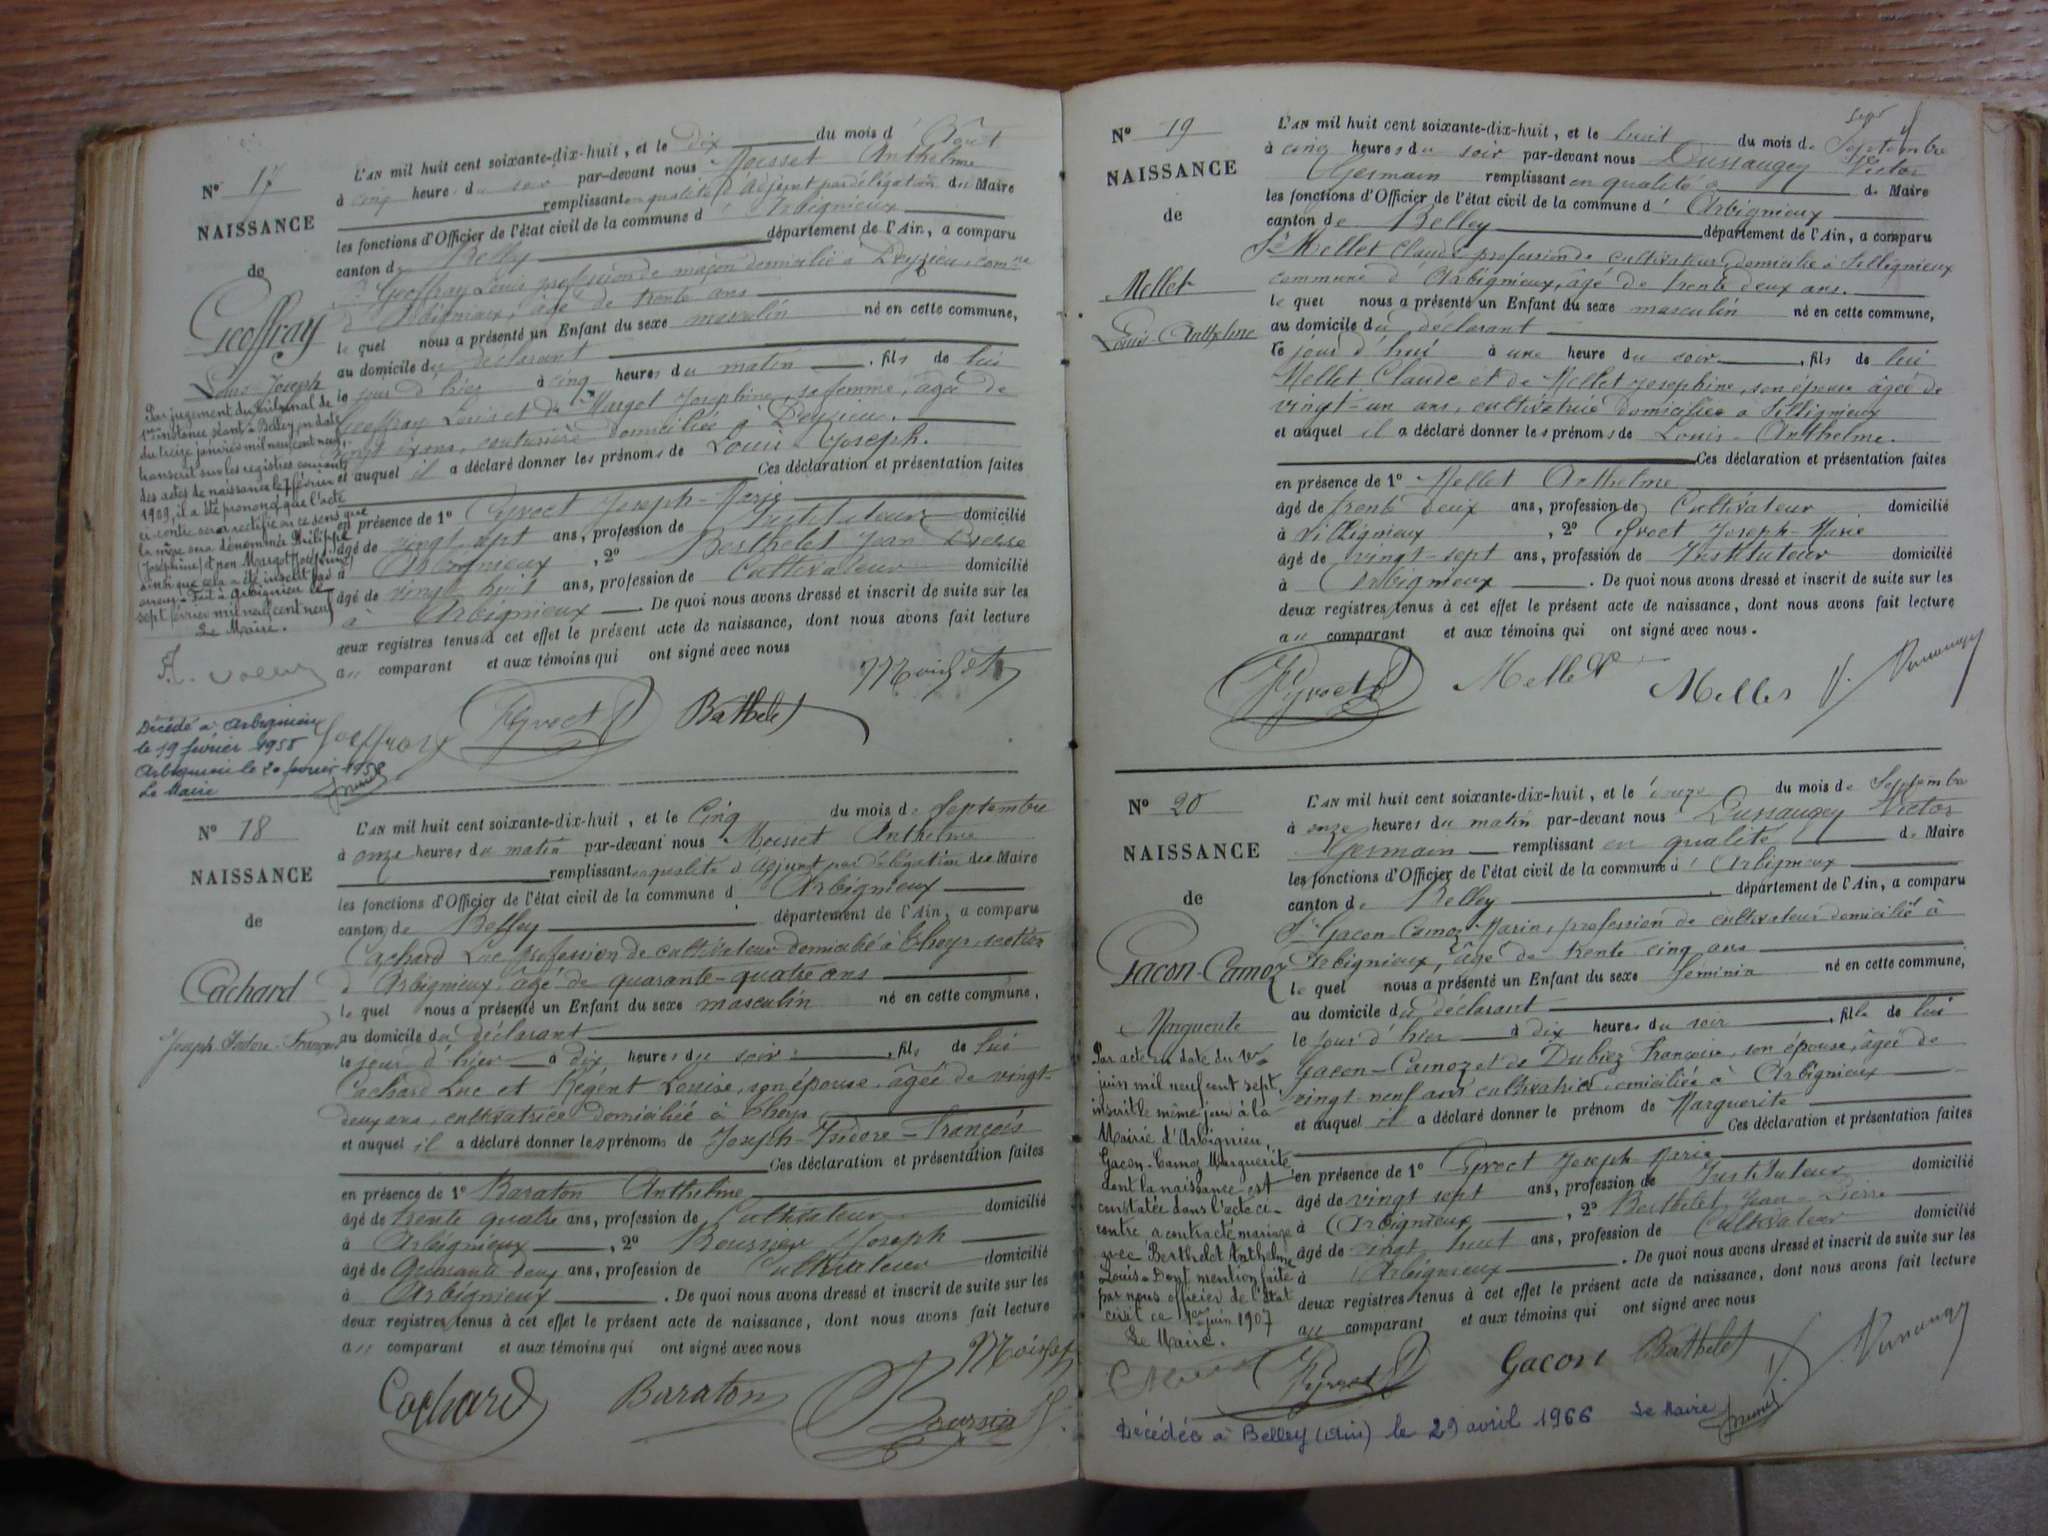 N° 17
NAISSANCE
de
Geoffray
Louis-Joseph
Par jugement du tribunal de
1ère instance séant à Belley, en date
du treize janvier mil neuf cent neuf,
transcrit sur les registres courants
des actes de naissance le 7 février
1909, il a été prononcé que l'acte
ci-contre sera rectifié en ce sens que
la mère sera dénommée Philippe
(Joséphine) et non Margot (Joséphine)
ainsi que cela a été inscrit par
erreur. Fait à Arbignieu le
sept février mil neuf cent neuf
Le Maire.
Décédé à Arbignieu
le 19 février 1958
Arbignieu le 20 février 1958
Le Maire
L'AN mil huit cent soixante-dix-huit, et le dix du mois d'Août
à cinq heures du soir par-devant nous Moisset Anthelme
remplissant en qualité d'adjoint par délégation du Maire
les fonctions d'Officier de l'état civil de la commune d'Arbignieux
canton de Belley département de l'Ain, a comparu
Sr Geoffray Louis profession de maçon domicilié à Peyzieu, comne
d'Arbignieux, âgé de trente ans
lequel nous a présenté un Enfant du sexe masculin né en cette commune,
au domicile du déclarant
le jour d'hier à cinq heures du matin, fils de lui
Geoffray Louis et de Margot Joséphine, sa femme, âgée de
vingt ans, couturière domiciliée à Peyzieu.
et auquel il a déclaré donner les prénoms de Louis Joseph.
Ces déclaration et présentation faites
en présence de 1° Joseph-Marie
âgé de vingt sept ans, profession de Instituteur domicilié
à Arbignieux, 2° Berthelet Jean Pierre
âgé de vingt huit ans, profession de Cultivateur domicilié
à Arbignieux. De quoi nous avons dressé et inscrit de suite sur les
deux registres tenus à cet effet le présent acte de naissance, dont nous avons fait lecture
au comparant et aux témoins qui ont signé avec nous
Geoffray Berthelet Moisset
N° 18
NAISSANCE
de
Cachard
Joseph Isidore-François
L'AN mil huit cent soixante-dix-huit, et le Cinq du mois de Septembre
à onze heures du matin par-devant nous Moisset Anthelme
remplissant en qualité d'adjoint par délégation du Maire
les fonctions d'Officier de l'état civil de la commune d'Arbignieux
canton de Belley département de l'Ain, a comparu
Cachard Luc profession de cultivateur domicilié à Thoys, section
d'Arbignieux, âgé de quarante-quatre ans
lequel nous a présenté un Enfant du sexe masculin né en cette commune,
au domicile du déclarant
le jour d'hier à dix heures du soir, fils de lui
Cachard Luc et Régent Louise, son épouse, âgée de vingt-
deux ans, cultivatrice domiciliée à Thoys
et auquel il a déclaré donner les prénoms de Joseph-Isidore-François
Ces déclaration et présentation faites
en présence de 1° Baraton Anthelme
âgé de trente quatre ans, profession de Cultivateur domicilié
à Arbignieux, 2° Joseph
âgé de quarante deux ans, profession de Cultivateur domicilié
à Arbignieux. De quoi nous avons dressé et inscrit de suite sur les
deux registres tenus à cet effet le présent acte de naissance, dont nous avons fait lecture
au comparant et aux témoins qui ont signé avec nous
Cachard Baraton Moisset
N° 19
NAISSANCE
de
Mellet
Louis-Anthelme
L'AN mil huit cent soixante-dix-huit, et le huit du mois de Septembre
à cinq heures du soir par-devant nous Dussaugey Victor
Germain remplissant en qualité de Maire
les fonctions d'Officier de l'état civil de la commune d'Arbignieux
canton de Belley département de l'Ain, a comparu
Sr Mellet Claude profession de cultivateur, domicilié à Sillignieux
commune d'Arbignieux, âgé de trente deux ans.
lequel nous a présenté un Enfant du sexe masculin né en cette commune,
au domicile du déclarant
ce jour d'hui à une heure du soir, fils de lui
Mellet Claude et de Mellet Josephine, son épouse âgée de
vingt-un ans, cultivatrice domiciliée à Sillignieux
et auquel il a déclaré donner les prénoms de Louis-Anthelme.
Ces déclaration et présentation faites
en présence de 1° Mellet Anthelme
âgé de trente deux ans, profession de Cultivateur domicilié
à Sillignieux, 2° Joseph-Marie
âgé de vingt-sept ans, profession de Instituteur domicilié
à Arbignieux. De quoi nous avons dressé et inscrit de suite sur les
deux registres tenus à cet effet le présent acte de naissance, dont nous avons fait lecture
au comparant et aux témoins qui ont signé avec nous.
Mellet Mellet V. Dussaugey
N° 20
NAISSANCE
de
Gacon-Camoz
Marguerite
Par acte en date du 1er
juin mil neuf cent sept,
inscrit le même jour à la
Mairie d'Arbignieu,
Gacon-Camoz Marguerite
dont la naissance est
constatée dans l'acte ci-
contre a contracté mariage
avec Berthelot Anthelme
Louis. Dont mention faite
par nous officier de l'état
civil ce 1er juin 1907
Le Maire.
L'AN mil huit cent soixante-dix-huit, et le du mois de Septembre
à onze heures du matin par-devant nous Dussaugey Victor
Germain remplissant en qualité de Maire
les fonctions d'Officier de l'état civil de la commune d'Arbignieux
canton de Belley département de l'Ain, a comparu
Sr Gacon-Camoz Marin, profession de cultivateur domicilié à
Arbignieux, âgé de trente cinq ans
lequel nous a présenté un Enfant du sexe féminin né en cette commune,
au domicile du déclarant
le jour d'hier à dix heures du soir, fille de lui
Gacon-Camoz et de Dubiez Françoise, son épouse, âgée de
vingt-neuf ans cultivatrice domiciliée à Arbignieux
et auquel il a déclaré donner le prénom de Marguerite
Ces déclaration et présentation faites
en présence de 1° Joseph-Marie
âgé de vingt sept ans, profession de Instituteur domicilié
à Arbignieux, 2° Berthelet Jean-Pierre
âgé de vingt huit ans, profession de Cultivateur domicilié
à Arbignieux. De quoi nous avons dressé et inscrit de suite sur les
deux registres tenus à cet effet le présent acte de naissance, dont nous avons fait lecture
au comparant et aux témoins qui ont signé avec nous
Gacon Berthelet V. Dussaugey
Décédée à Belley (Ain) le 29 avril 1966 Le Maire